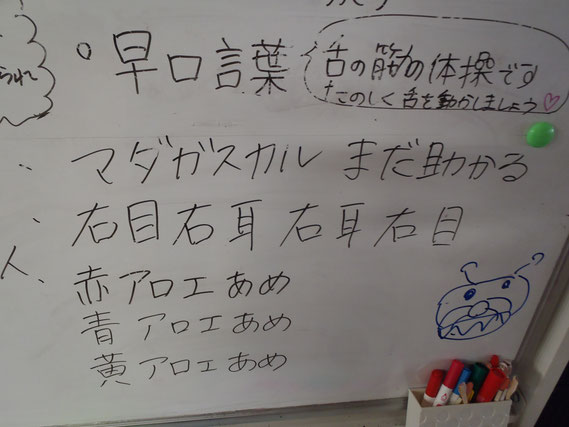 早口言葉
舌の筋の体操です
たのしく舌を動かしましょう♡
マダガスカル まだ助かる
右目右耳 右耳右目
赤アロエあめ
青アロエあめ
黄アロエあめ